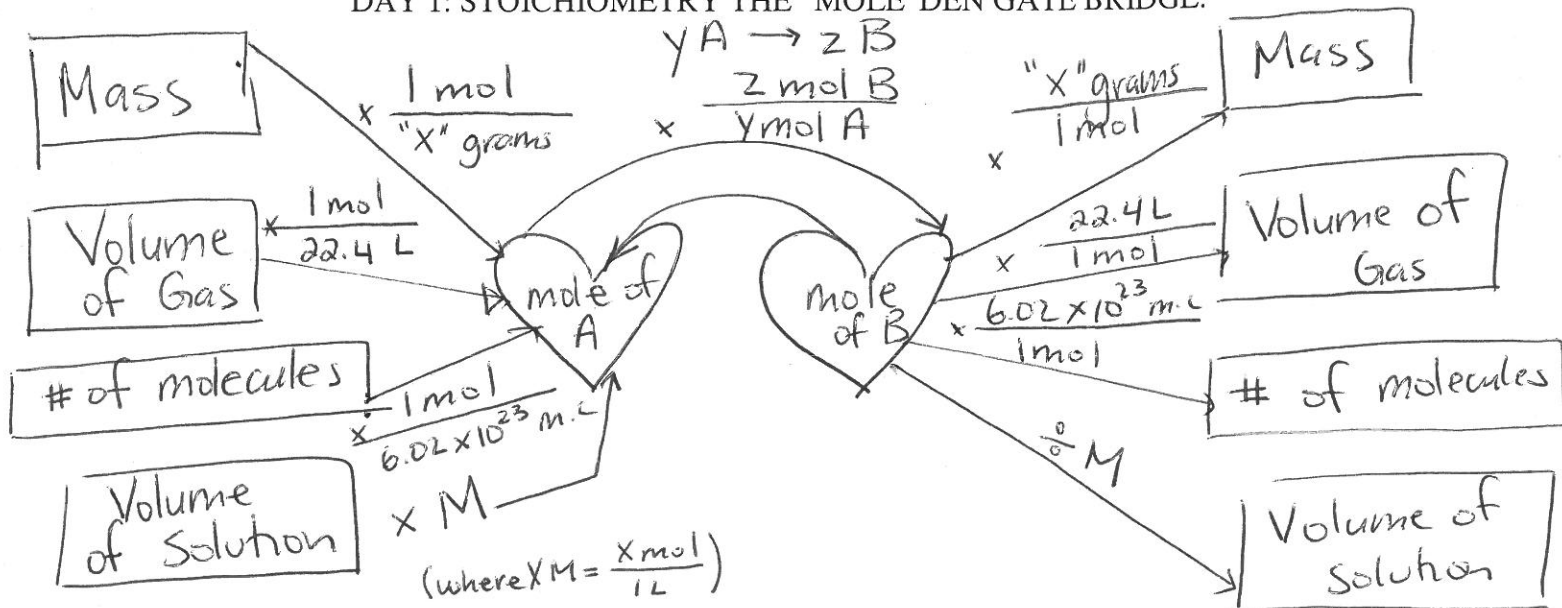 DAY 1: STOICHIOMETRY THE "MOLE"DEN GATE BRIDGE.
yA → zB
Mass
x 1 mol / "X" grams
x z mol B / y mol A
x "X" grams / 1 mol
Mass
Volume of Gas
x 1 mol / 22.4 L
mole of A
mole of B
x 22.4 L / 1 mol
Volume of Gas
# of molecules
x 1 mol / 6.02 x 10²³ m.c
x 6.02 x 10²³ m.c / 1 mol
# of molecules
Volume of Solution
x M
(where X M = X mol / 1 L)
÷ M
Volume of Solution